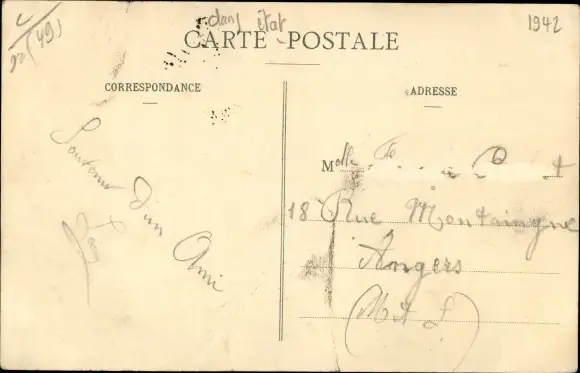 (49)
dans état
1942
CARTE POSTALE
CORRESPONDANCE
ADRESSE
Souvenir
d'un
Ami
Melle
18 Rue Montaingne
Angers
(M & L)